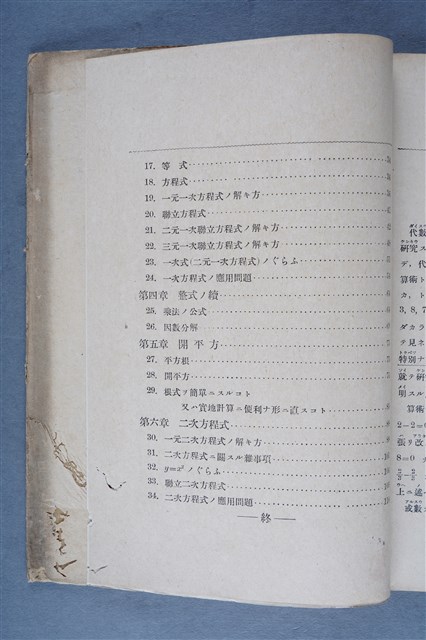 17. 等式
18. 方程式
19. 一元一次方程式ノ解キ方
20. 聯立方程式
21. 二元一次聯立方程式ノ解キ方
22. 三元一次聯立方程式ノ解キ方
23. 一次式(二元一次方程式)ノぐらふ
24. 一次方程式ノ應用問題
第四章 整式ノ續
25. 乘法ノ公式
26. 因數分解
第五章 開平方
27. 平方根
28. 開平方
29. 根式ヲ簡單ニスルコト
又ハ實地計算ニ便利ナ形ニ直スコト
第六章 二次方程式
30. 一元二次方程式ノ解キ方
31. 二次方程式ニ關スル雜事項
32. y=x²ノぐらふ
33. 聯立二次方程式
34. 二次方程式ノ應用問題
—終—
代數
研究ス
デ、代
算術ト
カ、ト
3, 8, 7
ダカラ
ヲ見ネ
特別ナ
就テ研
明スル
算術
2-2=0
張リ改
8=0
上ニ述
或數